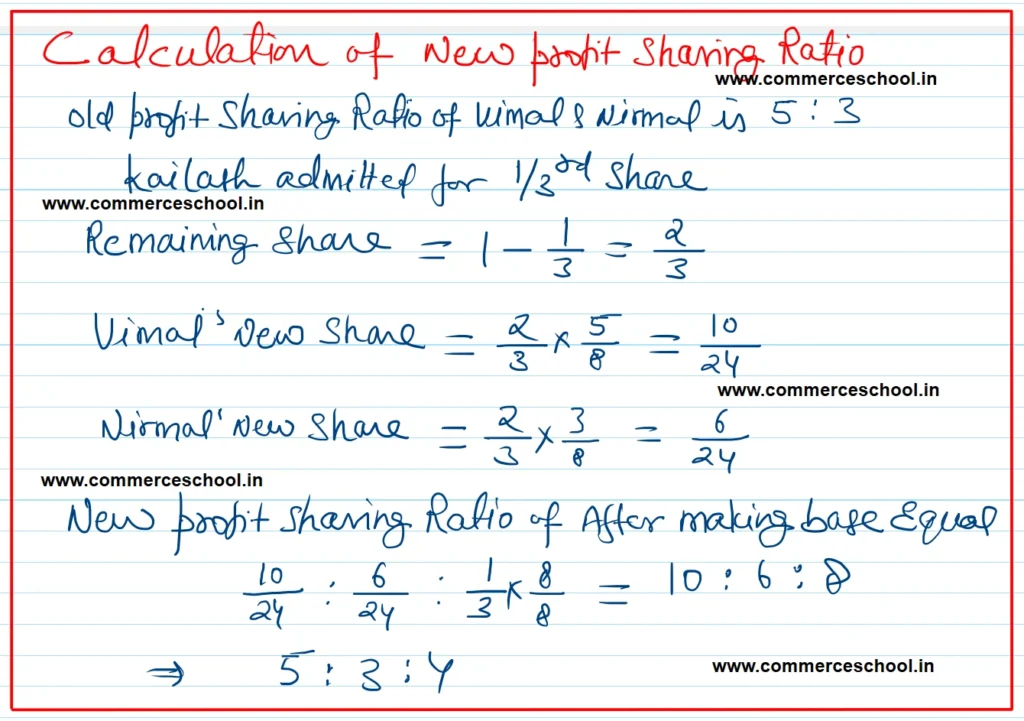 Calculation of New profit Sharing Ratio
www.commerceschool.in
old profit Sharing Ratio of Vimal & Nirmal is 5 : 3
Kailash admitted for 1/3rd Share
www.commerceschool.in
Remaining Share = 1 - 1/3 = 2/3
Vimal's New Share = 2/3 × 5/8 = 10/24
www.commerceschool.in
Nirmal' New Share = 2/3 × 3/8 = 6/24
www.commerceschool.in
New profit Sharing Ratio of After making base Equal
10/24 : 6/24 : 1/3 × 8/8 = 10 : 6 : 8
⇒ 5 : 3 : 4
www.commerceschool.in